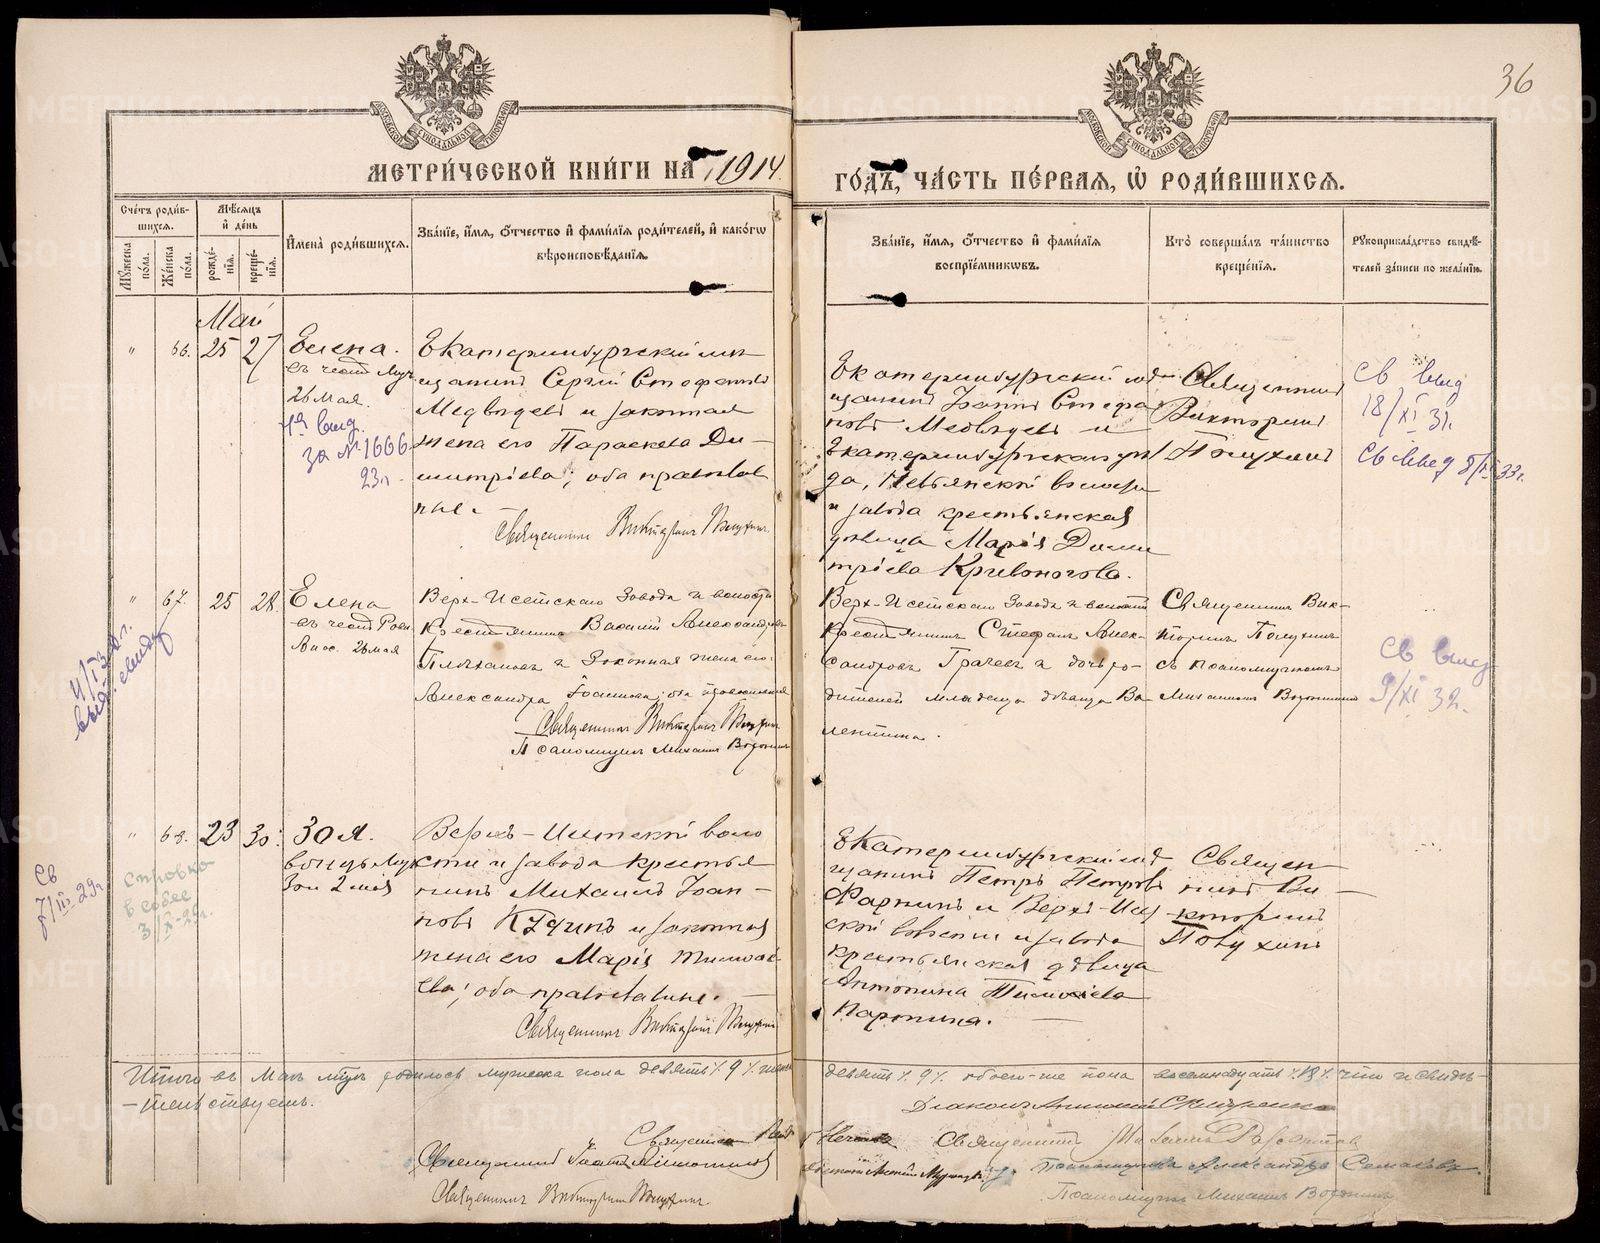 36
МЕТРИ́ЧЕСКОЙ КНИ́ГИ НА 1914
ГО́ДЪ, ЧА́СТЬ ПЕ́РВАЯ, Ѡ РОДИ́ВШИХСЯ.
Сче́тъ роди́вшихся.
Мѣ́сяцъ и де́нь
Му́жеска по́ла.
Же́нска по́ла.
рожде́нїя.
креще́нїя.
И҆мена̀ роди́вшихся.
Зва́нїе, и҆́мя, ѻ҆́тчество и҆ фами́лїя роди́телей, и҆ како́гѡ
вѣроисповѣ́данїя.
Зва́нїе, и҆́мя, ѻ҆́тчество и҆ фами́лїя
воспрїе́мникѡвъ.
Кто̀ соверша́лъ та́инство
креще́нїя.
Рꙋкоприкла́дство свидѣ́-
телей за́писи по жела́нїю.
Май
" 66. 25 27
Елена.
въ честь Муч.
26 мая.
выд.
за № 1666
23 г.
Екатеринбургскій мѣ-
щанинъ Сергій Стефановъ
Медвѣдевъ и законная
жена его Параскева Ди-
митріева; оба православ
ные.
Священникъ Викторинъ Полухинъ
Екатеринбургскій мѣ-
щанинъ Іоаннъ Стефа
новъ Медвѣдевъ и
Екатеринбургскаго уѣз
да, Невьянской волости
и завода крестьянская
дѣвица Марія Дими
тріева Кривоногова.
Священникъ
Викторинъ
Полухинъ
Св выд
18/XI 31.
Св выд 33 г.
" 67. 25 28.
Елена
въ честь Равн.
Апос. 26 мая
Верх-Исетскаго Завода и волости
Крестьянинъ Василій Александровъ
Плѣхановъ и Законная жена его
Александра Іоаннова, оба православные
Священникъ Викторинъ Полухинъ
Псаломщикъ Михаилъ Воронинъ
Верх-Исетскаго Завода и волости
Крестьянинъ Стефанъ Алек-
сандровъ Грачевъ и дочь ро-
дителей младенца дѣвица Ва-
лентина.
Священникъ Вик-
торинъ Полухинъ
съ псаломщикомъ
Михаиломъ Воронинымъ
Св выд
9/XI 32.
" 68. 23 30.
Зоя.
въ честь Муч
Зои 2 мая
Св
7/III 29 г
справка
в собес
3/X-29 г.
Верхъ-Исетской воло
сти и завода крестья
нинъ Михаилъ Іоан-
новъ Кузинъ и законная
жена его Марія Тимоѳе-
ева; оба православные.
Священникъ Викторинъ Полухинъ
Екатеринбургскій мѣ
щанинъ Петръ Петровъ
Фарнинъ и Верхъ-Исет
ской волости и завода
крестьянская дѣвица
Антонина Тимоѳеева
Паронина.
Священ-
никъ Ви-
кторинъ
Полухинъ
Итого въ Маѣ мѣс. родилось мужеска пола девять /9/ женска
девять /9/ обоего-же пола восемнадцать /18/ что и свидѣ-
-тельствуемъ.
Священникъ
Священникъ Викторинъ Полухинъ
Псаломщикъ Александръ
Псаломщикъ Михаилъ Воронинъ